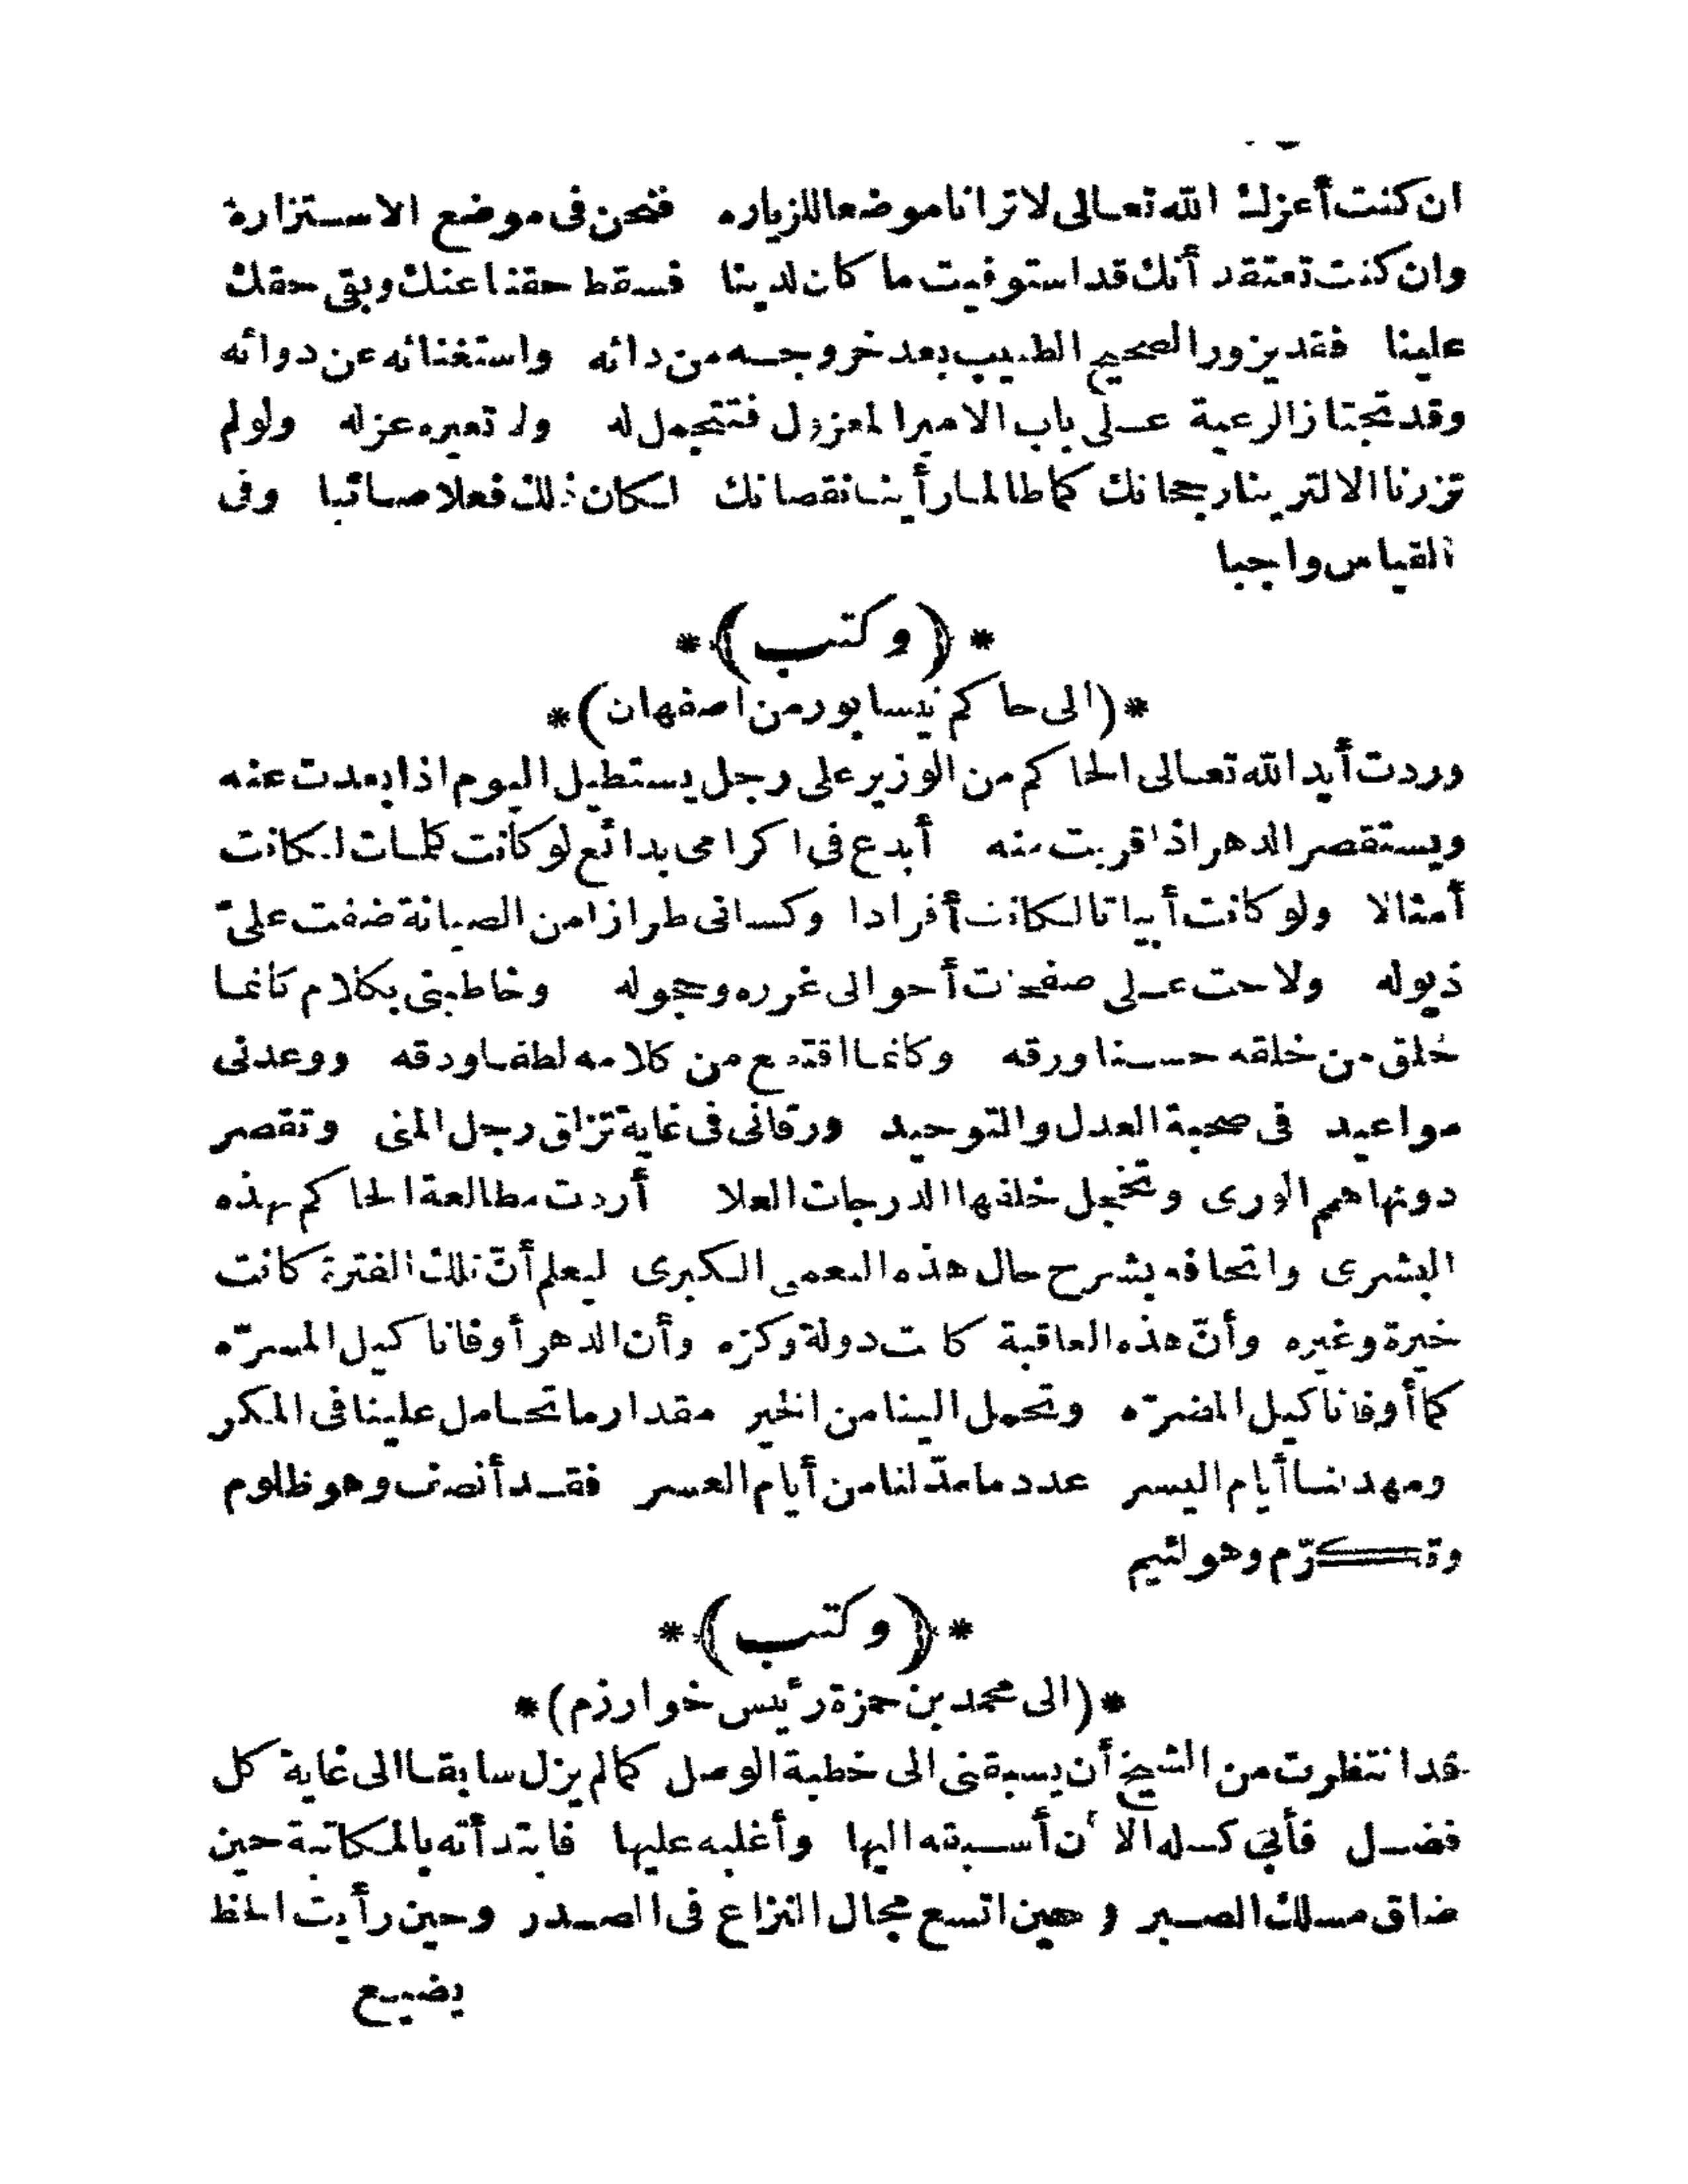 ان كنت أعزك الله تعالى لا ترانا موضعا للزياره فنحن فى موضع الاستزارة
وان كنت تعتقد أنك قد استوفيت ما كان لدينا فسقط حقنا عنك وبقى حقك
علينا فقد يزور الصحيح الطبيب بعد خروجه من دائه واستغنائه عن دوائه
وقد تجتاز الرعية على باب الامير المعزول فتتجمل له ولا تعيره عزله ولو لم
تزرنا الا لترينا رجحانك كما طالما رأينا نقصانك لكان ذلك فعلا صائبا وفى
القياس واجبا
*(وكتب)*
*(الى حاكم نيسابور من اصفهان)*
وردت أيد الله تعالى الحاكم من الوزير على رجل يستطيل اليوم اذا بعدت عنه
ويستقصر الدهر اذا قربت منه أبدع فى اكرامى بدائع لو كانت كلمات لكانت
أمثالا ولو كانت أبياتا لكانت أفرادا وكسانى طرازا من الصيانة ضفت علىّ
ذيوله ولاحت على صفحات أحوالى غرره وحجوله وخاطبنى بكلام كانما
خلق من خلقه حسنا ورقه وكانما اقتطع من كلامه لطفا ودقه ووعدنى
مواعيد فى صحبة العدل والتوحيد ورقانى فى غاية تزلق رجل المنى وتقصر
دونها همم الورى وتخجل خلفها الدرجات العلا أردت مطالعة الحاكم بهذه
البشرى واتحافه بشرح حال هذه النعمى الكبرى ليعلم أنّ تلك الفترة كانت
خيرة وغيره وأنّ هذه العاقبة كانت دولة وكره وأن الدهر أوفانا كيل المسرّه
كما أوفانا كيل المضرّه وتحمل الينا من الخير مقدار ما تحامل علينا فى المكر
ومهد لنا أيام اليسر عدد ما مدّ لنا من أيام العسر فقد أنصف وهو ظلوم
وتكرّم وهو لئيم
*(وكتب)*
*(الى محمد بن حمزة رئيس خوارزم)*
قد انتظرت من الشيخ أن يسبقنى الى خطبة الوصل كما لم يزل سابقا الى غاية كل
فضل فأبى كسله الا أن أسبقه اليها وأغلبه عليها فابتدأته بالمكاتبة حين
ضاق مسلك الصبر وحين اتسع مجال النزاع فى الصدر وحين رأيت الحظ
يضيع